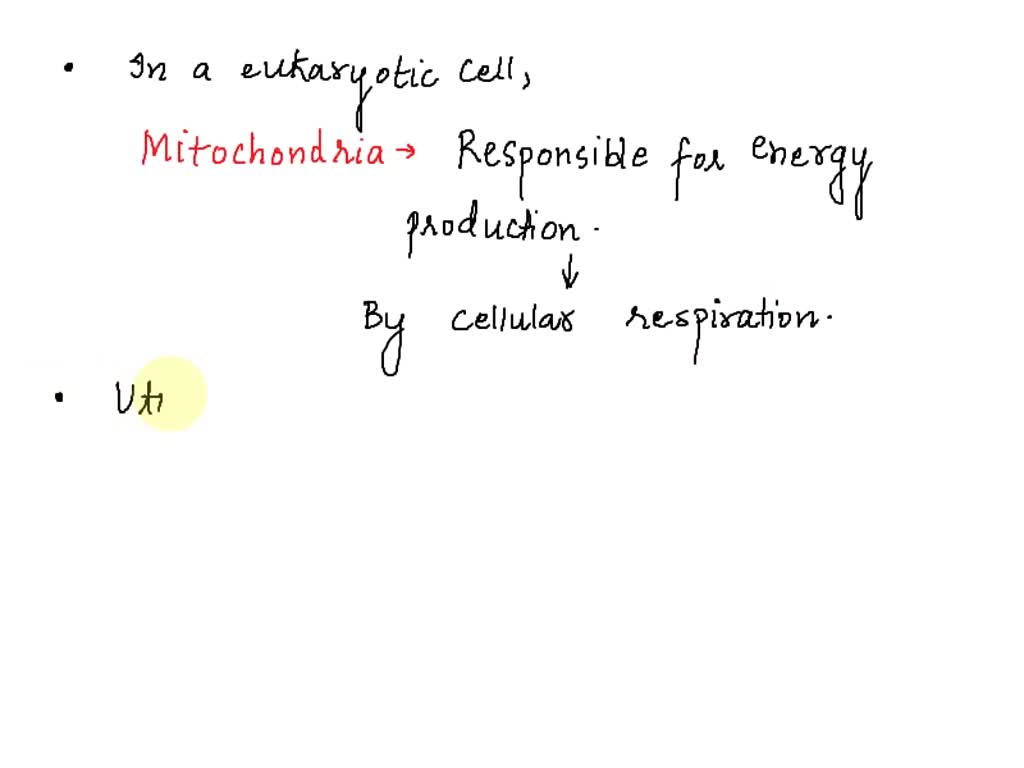 • In a eukaryotic cell,
Mitochondria → Responsible for energy
production.
↓
By cellular respiration.
• Uti